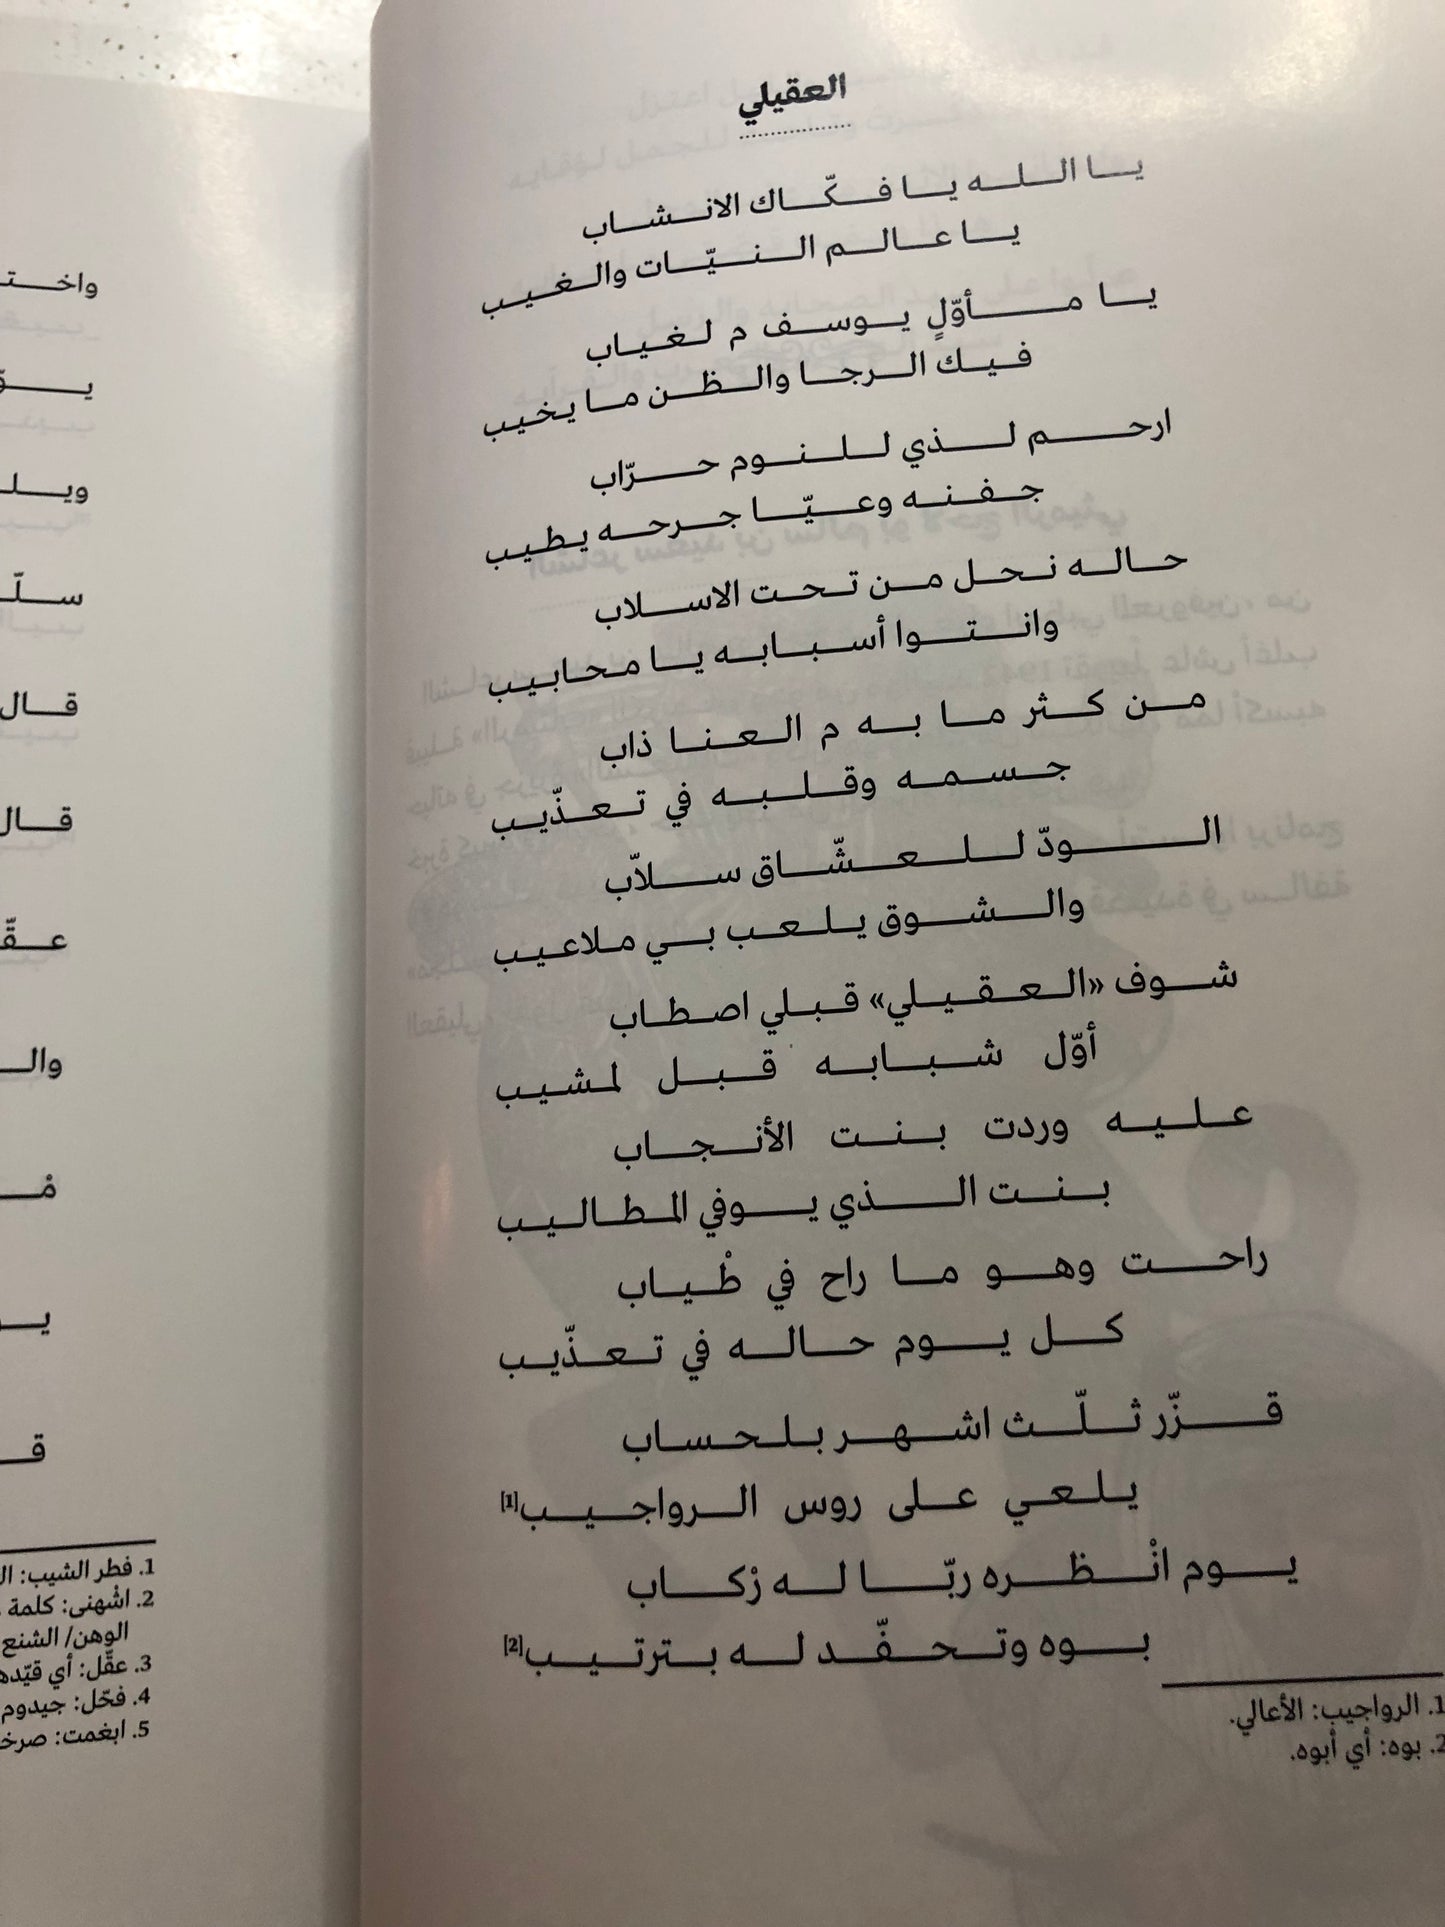 العقيلي
يا الله يا فكّاك الانشاب
يا عالم النيّات والغيب
يا مأوّلٍ يوسف م لغياب
فيك الرجا والظن ما يخيب
ارحم لذي للنوم حرّاب
جفنه وعيّا جرحه يطيب
حاله نحل من تحت الاسلاب
وانتوا أسبابه يا محابيب
من كثر ما به م العنا ذاب
جسمه وقلبه في تعذّيب
الودّ للعشّاق سلاّب
والشوق يلعب بي ملاعيب
شوف «العقيلي» قبلي اصطاب
أوّل شبابه قبل لمشيب
عليه وردت بنت الأنجاب
بنت الذي يوفي المطاليب
راحت وهو ما راح في طْياب
كل يوم حاله في تعذّيب
قزّر ثلّث اشهر بلحساب
يلعي على روس الرواجيب[1]
يوم انْظره ربّا له رْكاب
بوه وتحفّد له بترتيب[2]
1. الرواجيب: الأعالي.
2. بوه: أي أبوه.
قال
قال
1. فطر الشيب:
2. اشْهنى: كلمة
الوهن/ الشنع
3. عقّل: أي
4. فحّل: جيدوم
5. ابغمت: